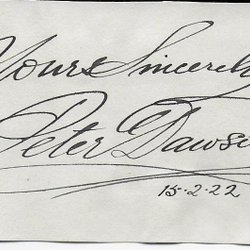 Yours Sincerely
Peter Dawso
15-2-22